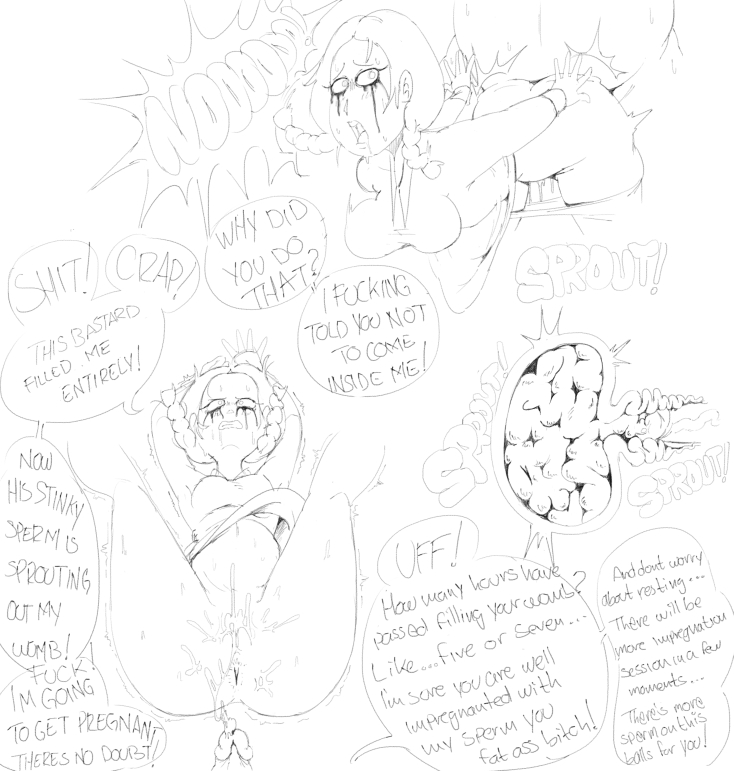 NOWW
WHY DID
YOU DO
THAT?
SHIT!
CRAP!
THIS BASTARD
FILLED ME
ENTIRELY!
I FUCKING
TOLD YOU NOT
TO COME
INSIDE ME!
SPROUT!
SPROUT!
SPROUT!
NOW
HIS STINKY
SPERM IS
SPROUTING
OUT MY
WOMB!
FUCK!
I'M GOING
TO GET PREGNANT
THERE'S NO DOUBT!
UFF!
How many hours have
passed filling your womb?
Like...five or seven...
I'm sure you are well
impregnanted with
my sperm you
fat ass bitch!
And dont worry
about resting...
There will be
more impregnation
session in a few
moments...
There's more
sperm on this
balls for you!